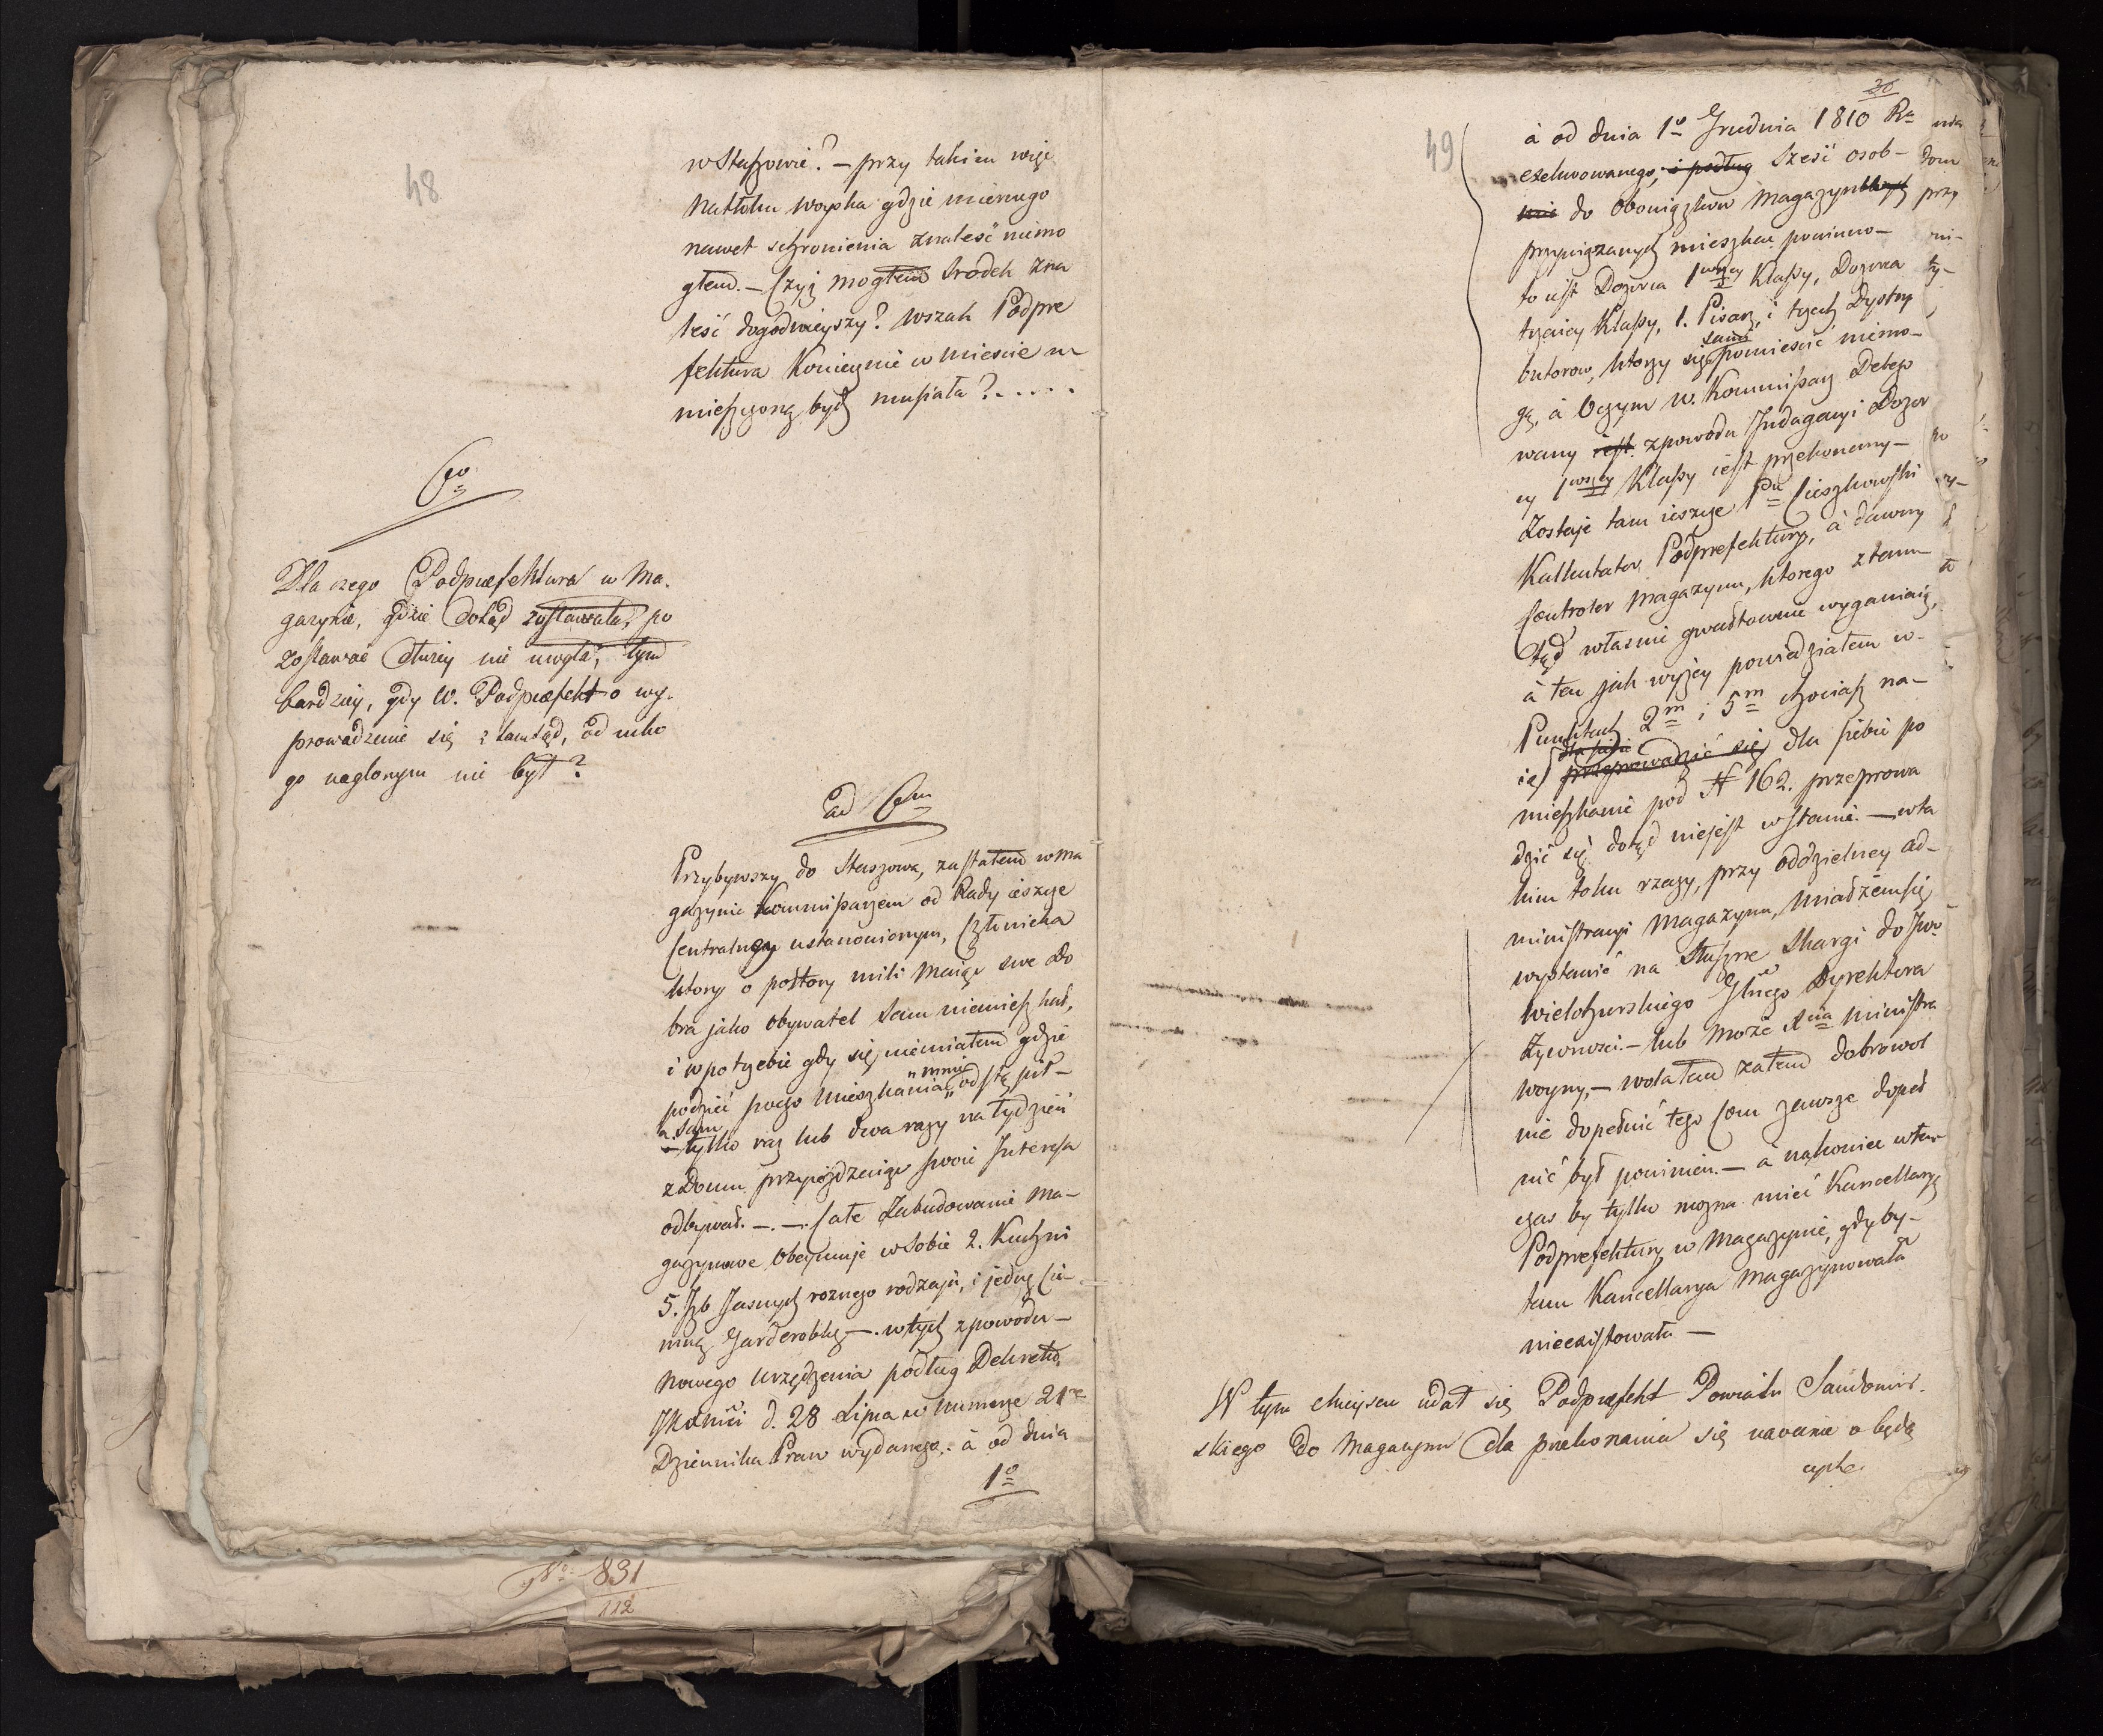 48
w Staszowie? – przy takim więc
natłoku woyska gdzie miernego
nawet schronienia znaleść niemo
głem. – Czyż mogłem srodek zna
leść dogodnieyszy? wszak Podpre
fektura Koniecznie w miescie u
mieszczoną bydź musiała? . . . . .
6to
Dla czego Podprefektura w Ma.
gazynie, gdzie dotąd zostawała, po
zostawać dłużey nie mogła, tym
bardziey, gdy W. Podprefekt o wy.
prowadzenie się z tamtąd, od niko
go naglonym nie był?
ad 6tum
Przybywszy do Staszowa, zastałem w ma
gazynie Kommissarzem od Rady ieszcze
Centralney ustanowionym, Człowieka
ktory o połtory mili maiąc swe do
bra jako obywatel sam niemieszkał,
i w potrzebie gdy się niemiałem gdzie
podzieć swego mieszkania mnie odstąpił –
a sam
tylko raz lub dwa razy na tydzień
z domu przyieżdzaiąc swoie Interesa
odbywał. – . – . Całe Zabudowanie ma–
gazynowe obeymuje w sobie 2. Kuchni
5. Jzb Jasnych roznego rodzaju, i jednę Cie–
mną Garderobkę – . w tych z powodu –
nowego urządzenia podług Dekretu
d. 28 Lipca w Numerze 21
Dziennika Praw wydanego. à od dnia
1o
No 831
112
30
49
à od dnia 1o Grudnia 1810 Ra
exekwowanego, i podług sześć osob –
do obowiązkow magazynowych
przywiązanych mieszkać powinno –
to iest Dozorca 1wszey Klassy, Dozorca
trzeciey Klassy, 1. Pisarz, i trzech Dystry
butorow, ktorzy się sami pomiescić niemo–
gą, à o czym W. Kommissarz Delego
wany iest z powodu Indagacyi Dozor
cy 1wszey Klassy iest przekonany –
Zostaje tam ieszcze Pan Cieszkowski
Kalkulator Podprefektury, à dawny
Controler Magazynu, ktorego z tam
tąd własnie gwałtownie wyganiaią,
à ten jak wyżey powiedziałem w –
Punktach 2m i 5m chociaż na–
ięte dla siebie przeprowadzić się dla siebie po
mieszkanie pod N 162. przeprowa
dzić się dotąd niejest w stanie. – w ta
kim toku rzeczy, przy oddzielney ad–
ministracyi Magazynu, miałżem się
wystawić na słuszne skargi do Jwo
Wielohurskiego Głnego Dyrektora
Zywnosci. – lub może Xcia Ministra
Woyny, – wolałem zatem dobrowol
nie dopełnić tego com zawsze dopeł
nić był powinien. – a nakoniec wten
czas by tylko można mieć Kancellaryą
Podprefektury w Magazynie, gdyby –
tam Kancellarya Magazynowała
nieexistowała –
W tym mieyscu udał się Podprefekt Powiatu Sandomir.
skiego do Magazynu dla przekonania się naocznie o będą
cych